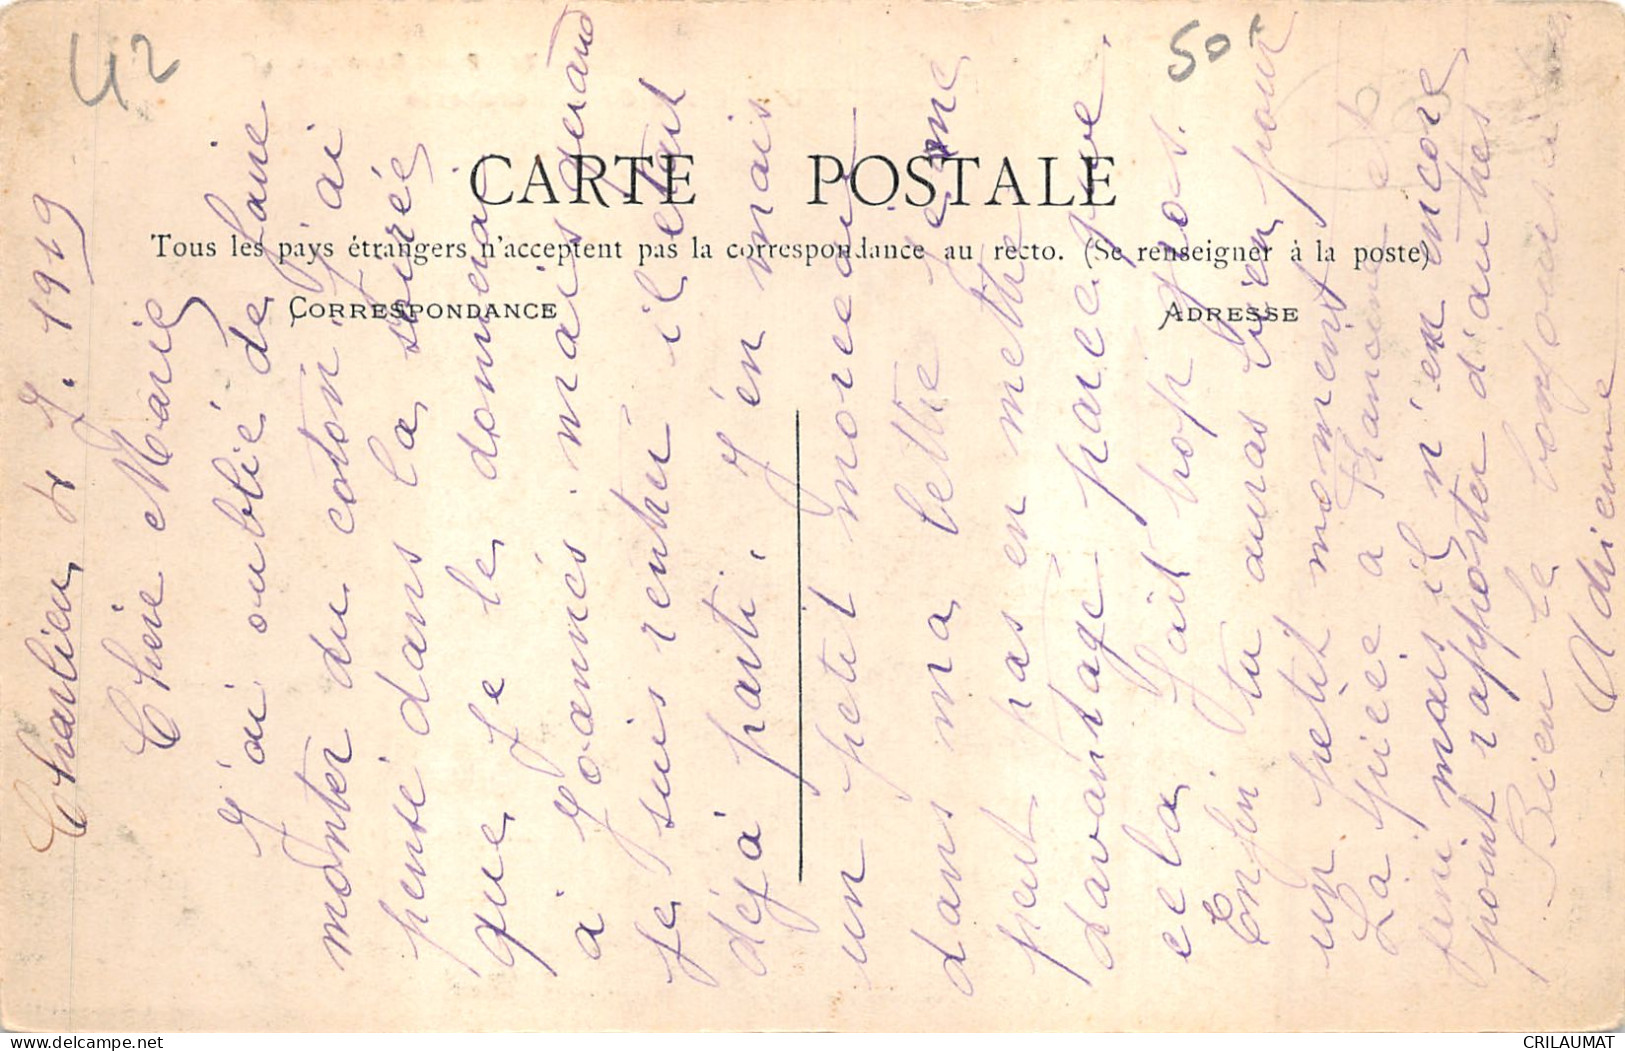 42
50F
CARTE POSTALE
Tous les pays étrangers n'acceptent pas la correspondance au recto. (Se renseigner à la poste)
CORRESPONDANCE
ADRESSE
Charlieu 4 7. 1919
Chère Marie
J'ai oublié de faire
monter du coton j'ai
pensé dans la soirée
que je le donnerai
à Joannès mais quand
je suis rentré il était
déjà parti. J'en mais
un petit morceau
dans ma lettre je ne
peut pas en mettre
davantage parce que
cela fait trop gros.
Enfin tu auras bien pour
un petit moment
La pièce a Francine est
fini mais il n'en encore
point rapporter d'autres
Bien le bonjour
Adrienne
CRILAUMAT